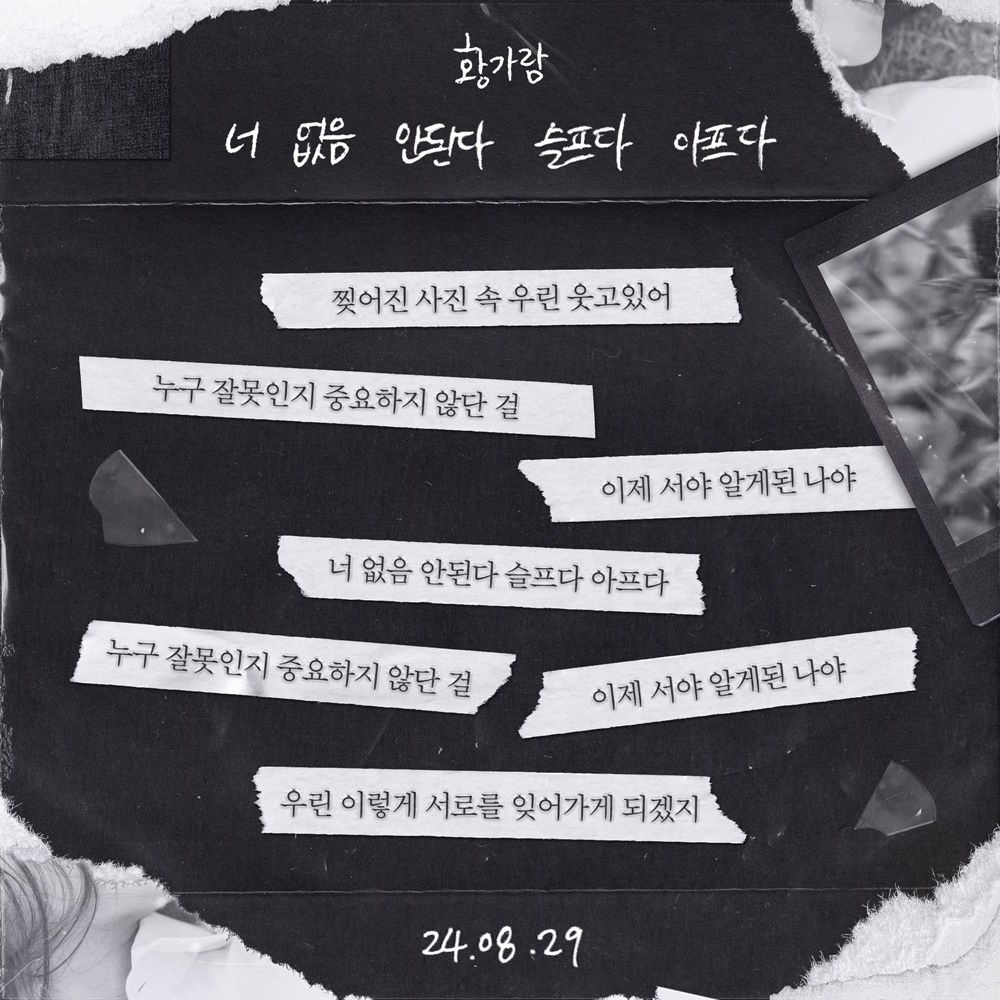 황가람
너 없음 안된다 슬프다 아프다
찢어진 사진 속 우린 웃고있어
누구 잘못인지 중요하지 않단 걸
이제 서야 알게된 나야
너 없음 안된다 슬프다 아프다
누구 잘못인지 중요하지 않단 걸
이제 서야 알게된 나야
우린 이렇게 서로를 잊어가게 되겠지
24.08.29